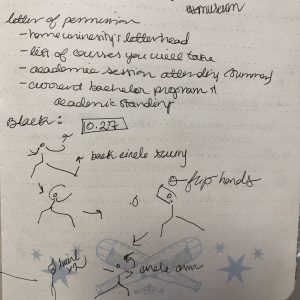 museum
letter of permission
- home university's letterhead
- list of courses you will take
- academic session attending (summer)
- current bachelor program &
academic standing
Black:
0.27
back circle scurry
flip hands
circle arm